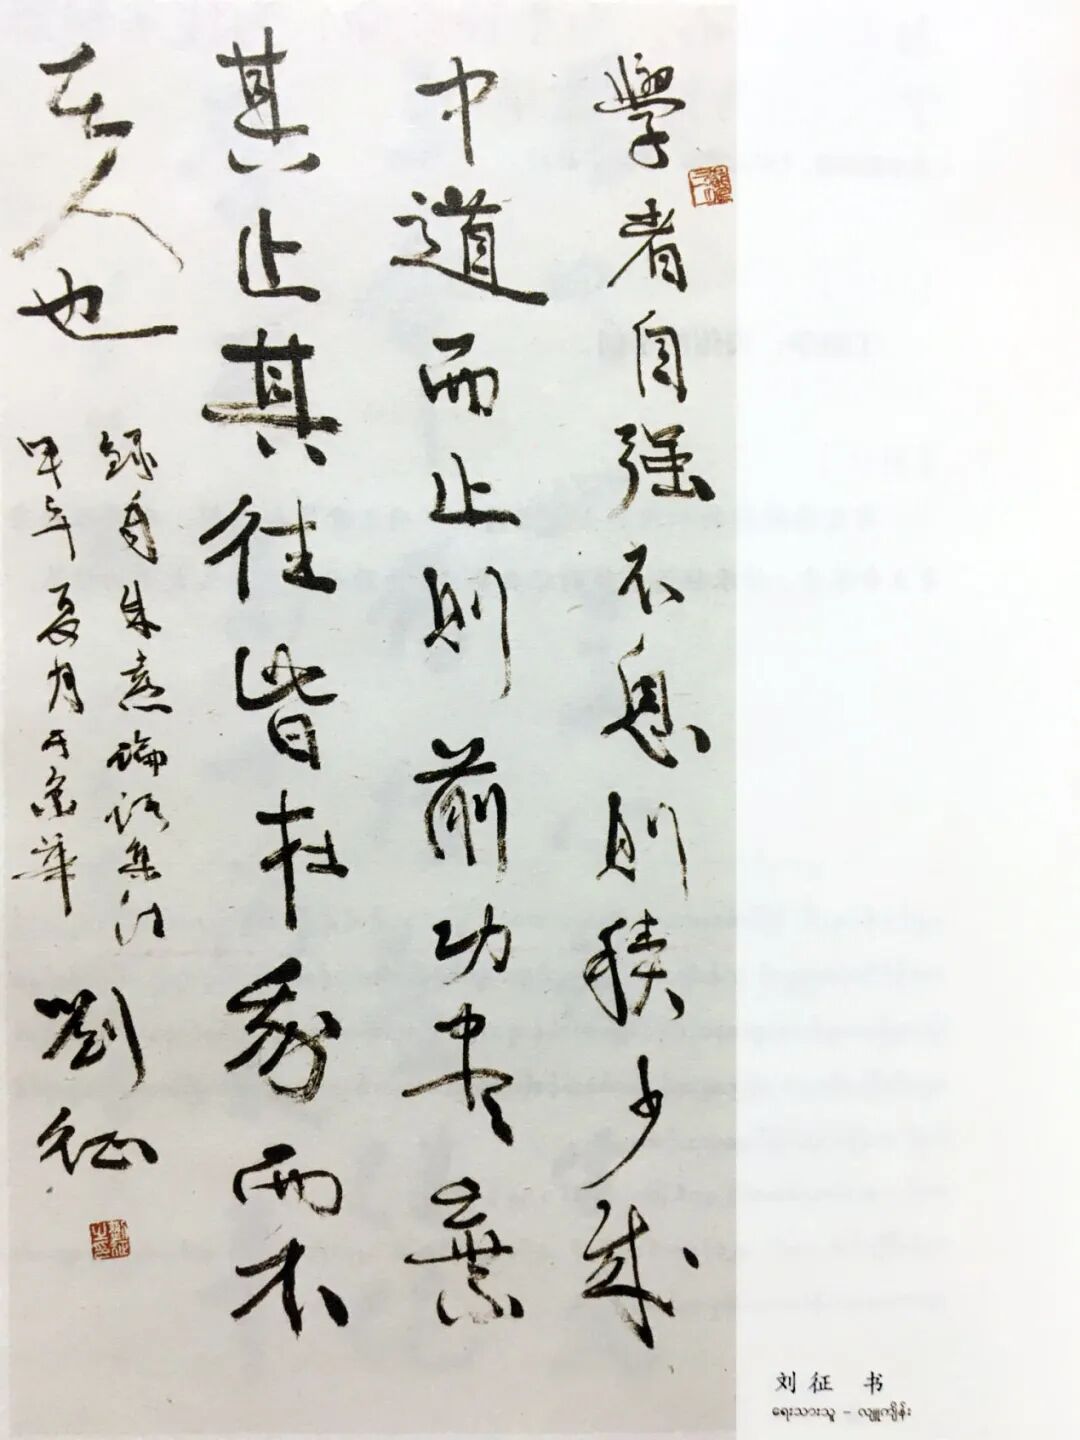 學者自强不息則積少成
中道而止則前功盡棄
其止其往皆在我而不
在人也
録自朱熹論語集注
甲午夏月于京華
劉征
刘征 书
ရေးသားသူ - လျူကျိန်း